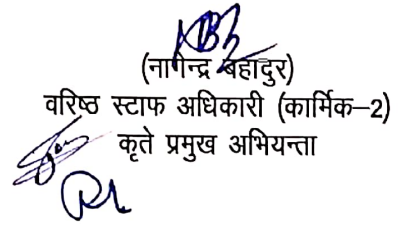 (नागेन्द्र बहादुर)
वरिष्ठ स्टाफ अधिकारी (कार्मिक–2)
कृते प्रमुख अभियन्ता